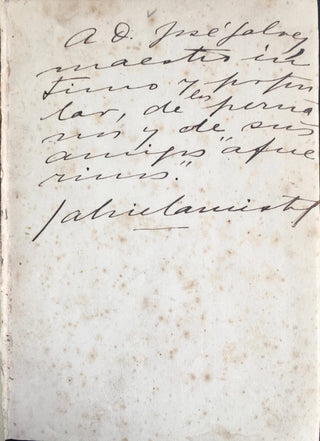 A D. José Galvez
maestro ín
timo y popu
lar, de los perua
nos y de sus
amigos "afue
rinos".
Gabriela Mistral